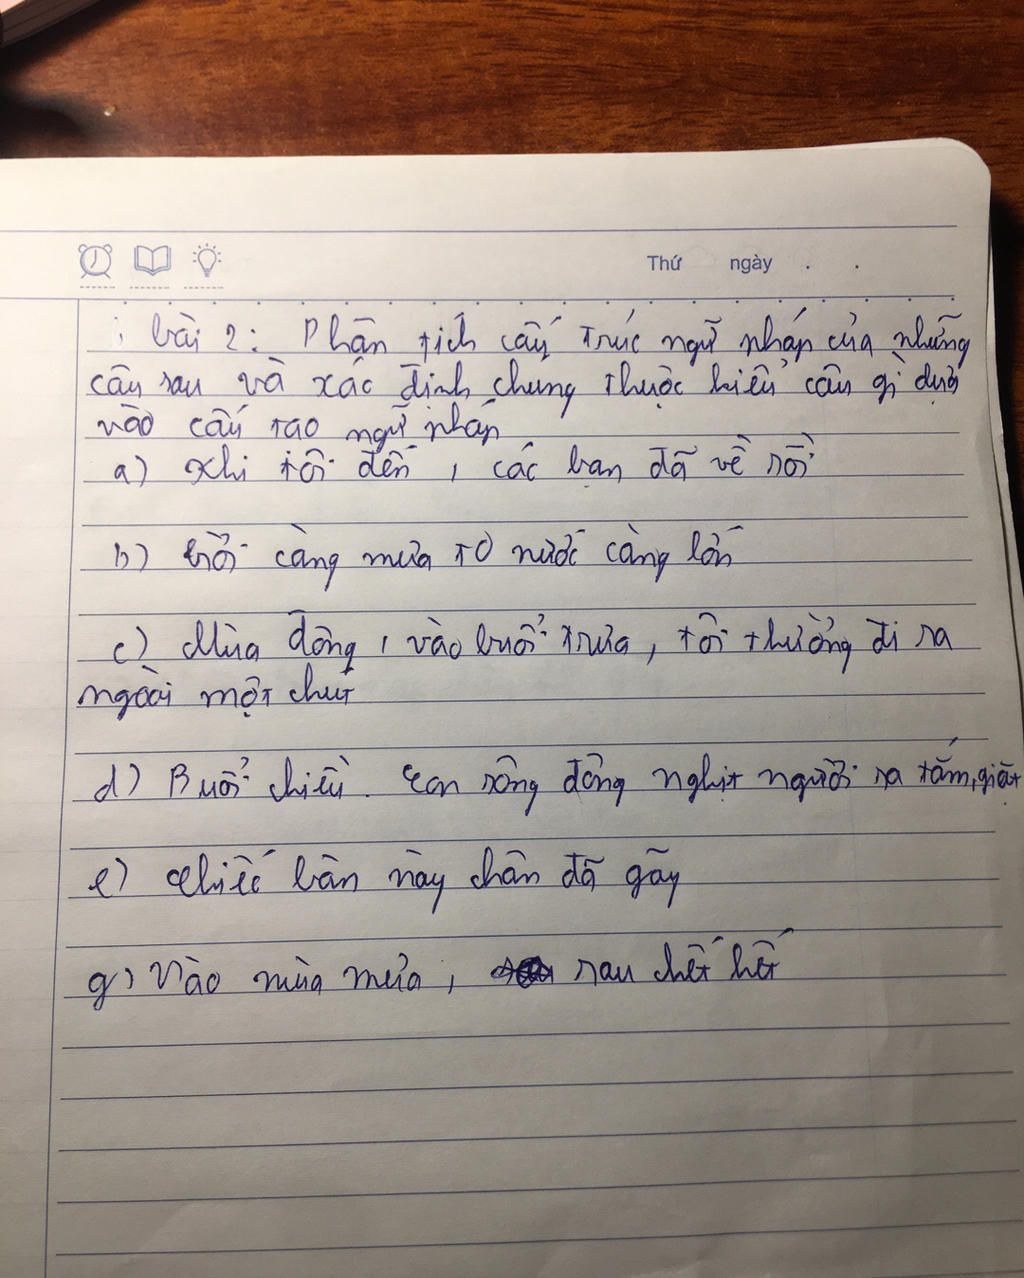 Thứ ngày . .
bài 2: Phân tích cấu trúc ngữ pháp của những
câu sau và xác định chung thuộc kiểu câu gì dựa
vào cấu tạo ngữ pháp
a) Khi tôi đến, các bạn đã về rồi
b) trời càng mưa to nước càng lớn
c) Mùa đông, vào buổi trưa, tôi thường đi ra
ngoài một chút
d) Buổi chiều. Con sông đông nghịt người ra tắm, giặt
e) Chiếc bàn này chân đã gãy
g) Vào mùa mưa, rau chết hết